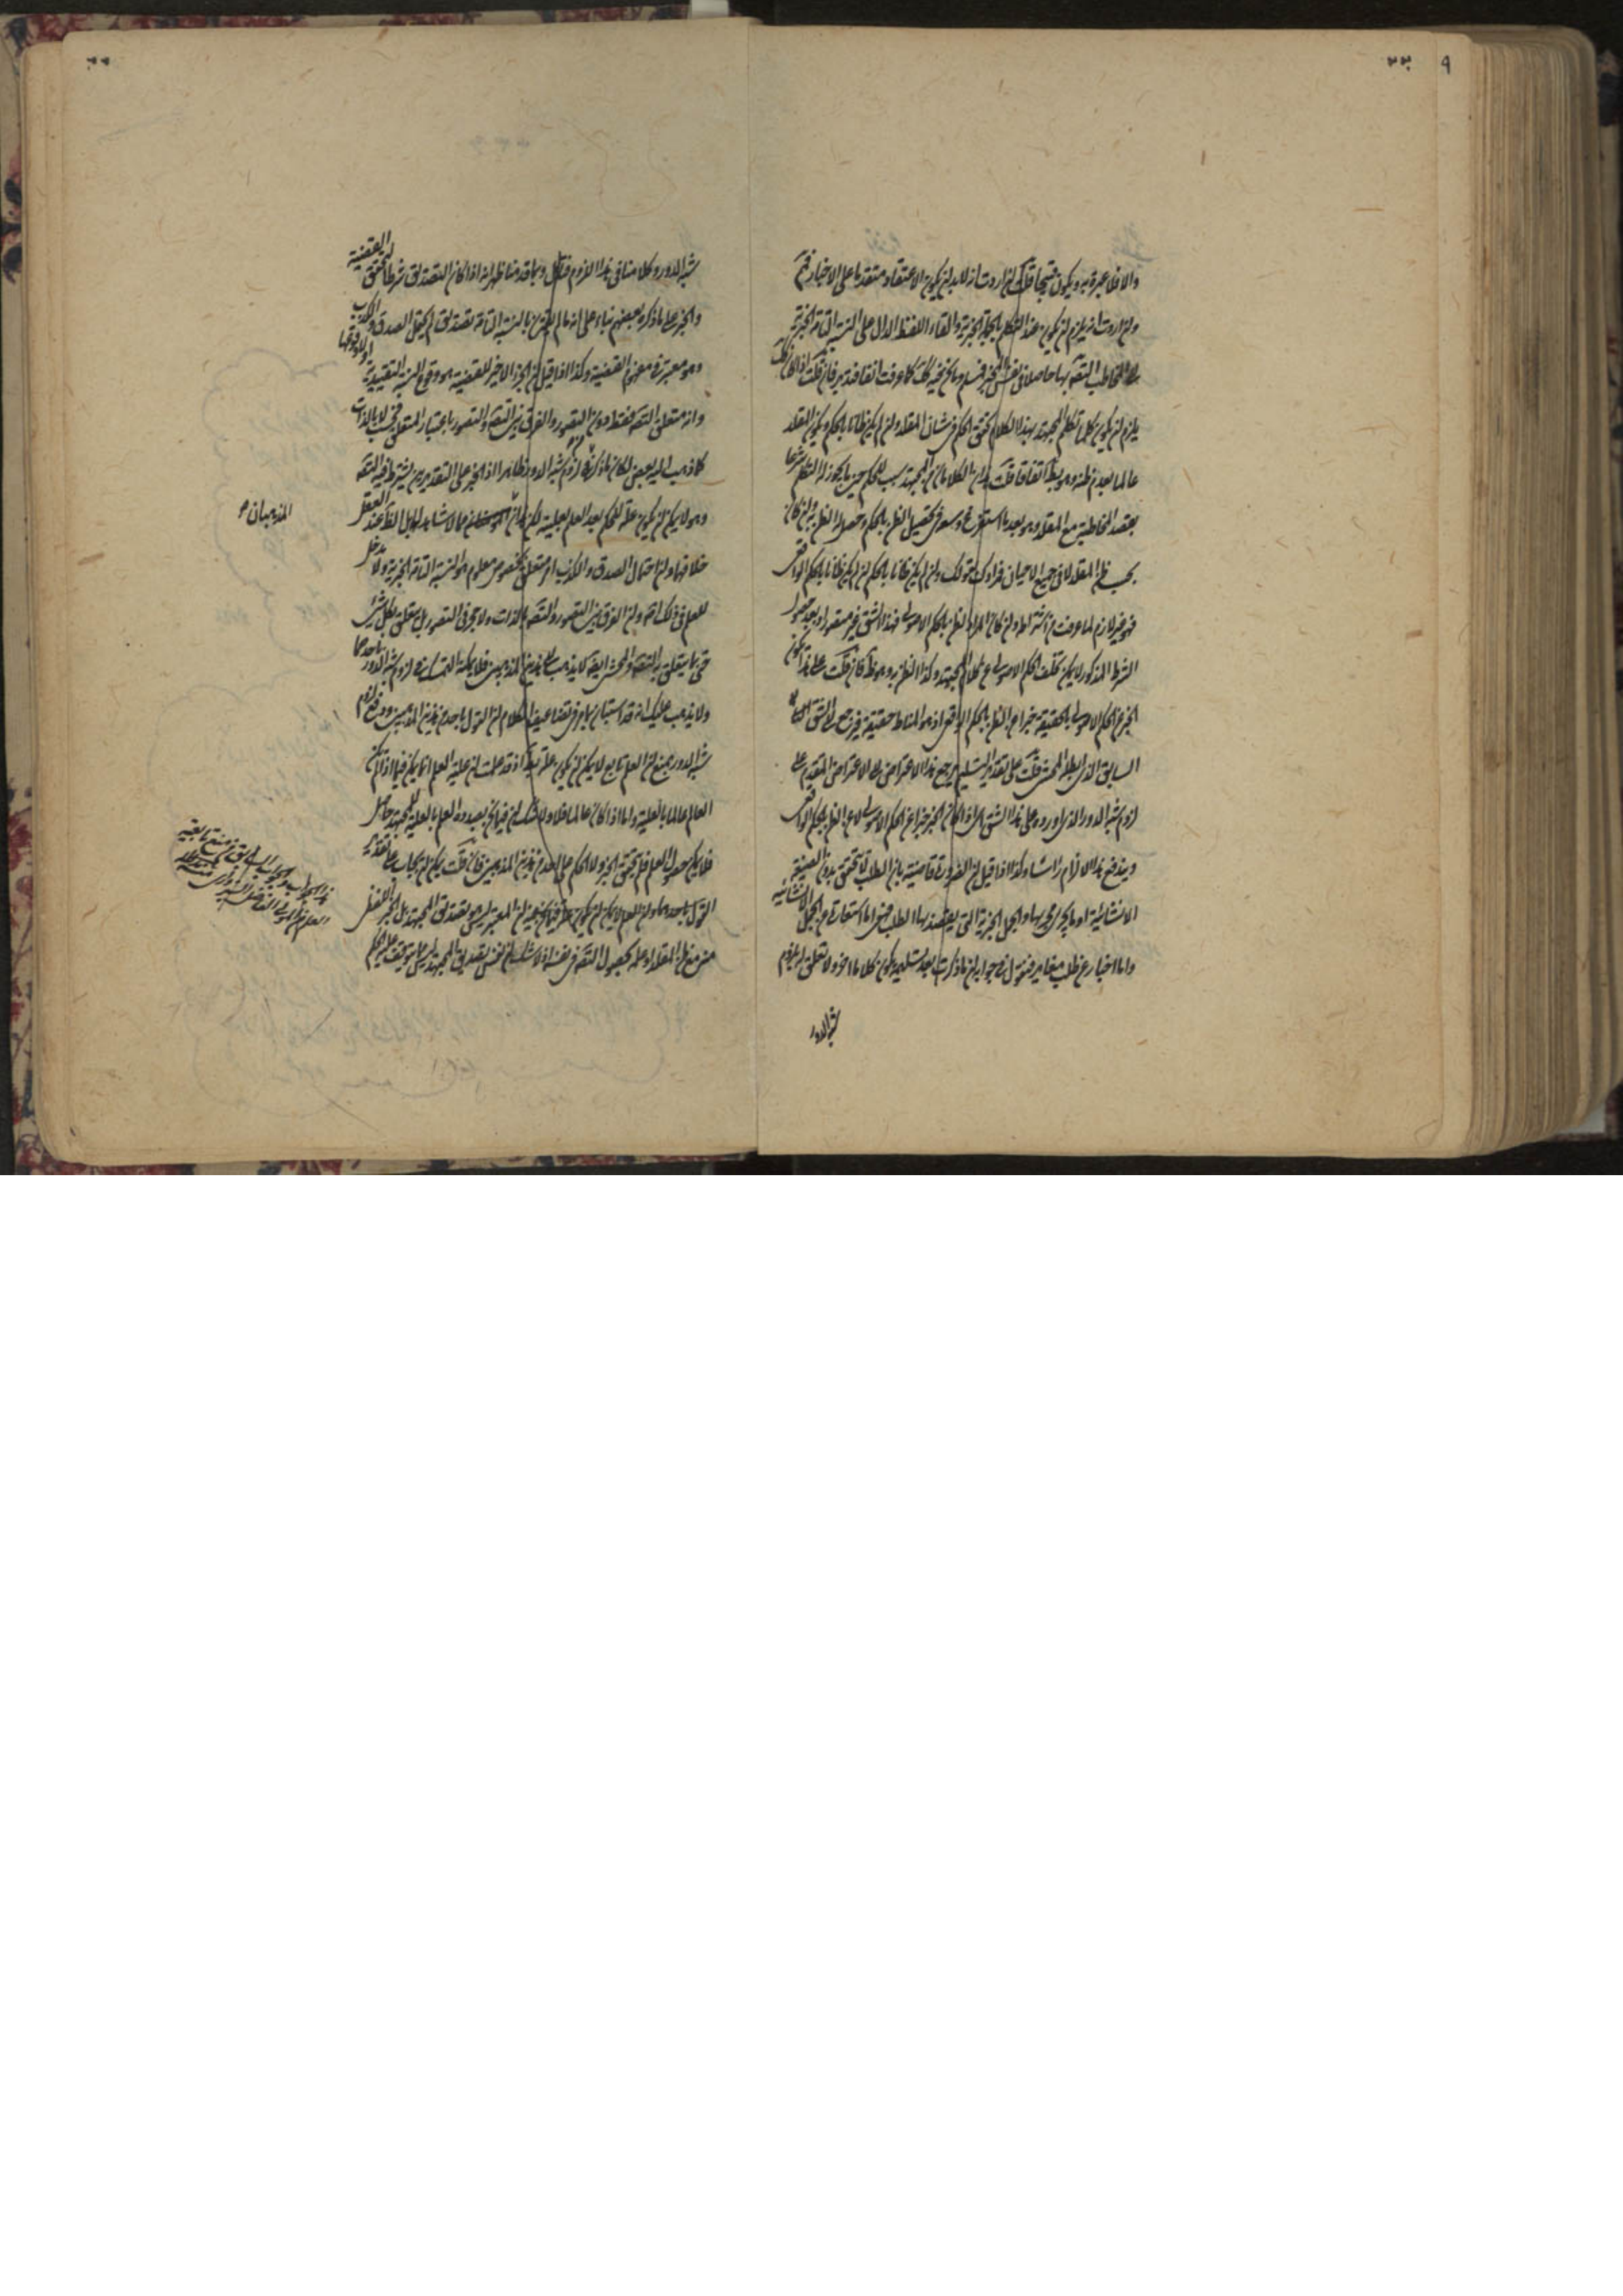 والا فلا عبرة به ويكون قبيحا قلت ان اردت انه لابد ان يكون الاعتقاد متقدما على الاخبار فتم
وان اردت انه يلزم ان يكون عند التكلم بالجملة الخبرية والقاء اللفظ الدال على النسبة التامة الخبرية
الى المخاطب التصديق بها حاصلا في نفس المخبر فمسلم وما نحن فيه كك كما عرفت انفا فتدبر فان قلت اذا كان
يلزم ان يكون كلما تكلم المجتهد بهذا الكلام تحقق الحكم في شان المقلد وان لم يكن ظانا بالحكم ويكون المقلد
عالما بعدم ظنه وهو بط اتفاقا قلت هذا الكلام ان المجتهد سبب للحكم حين ما يجوز له التكلم شرعا
بقصد المخاطبة مع المقلد وهو بعد ما استفرغ وسعه في تحصيل الظن بالحكم وحصل له الظن به وان كان
بحسب ظن المقلد لا في جميع الاحيان فمرادك بقولك وان لم يكن ظانا بالحكم ان لم يكن ظانا بالحكم الواقعي
فهو غير لازم لما عرفت من اشتراطه وان كان المراد الظن بالحكم الاصولي فهذا الشق غير متصور اذ بعد حصول
الشرط المذكور لا يمكن تخلف الحكم الاصولي عن كلام المجتهد وكذا الظن به وهو ظ فان قلت على هذا يكون
الخبر عن الحكم الاصولي بالحقيقة خبرا عن الظن بالحكم الواقعي اذ هو المناط حقيقة فيرجع الى الشق
السابق الذي ابطله المحشي قلت على تقدير التسليم يرجع هذا الاعتراض الى الاعتراض المتقدم على
لزوم شبه الدور الذي اورده على هذا الشق اي اذا كان الخبر خبرا عن الحكم الاصولي لا عن الظن بالحكم الواقعي
ويندفع هذا الالزام راسا وكذا ما قيل ان الضرورة قاضية بان الطلب لا يتحقق بدون الصيغة
الانشائية او ما يجري مجريها والجمل الخبرية التي يقصد بها الطلب فهي اما استعارة عن الجمل الانشائية
واما اخبار عن طلب مغاير فنقول في جوابه ان ما ذكرت بعد تسليمه يكون كلاما اخر ولا تعلق له بلزوم
شبه الدور
شبه الدور وكلامنا في هذا اللزوم فتامل وبما قدمنا ظهر انه اذا كان التصديق شرطا لتحقق القضية
والخبر على ما ذكره بعضهم بناء على انه ما لم يقترن بالنسبة التامة تصديق لم يحتمل الصدق والكذب
وهو معتبر في مفهوم القضية وكذا ما قيل ان الجزء الاخير للقضية هو وقوع النسبة التقييدية او لا وقوعها
وانه متعلق التصديق فقط دون التصور والفرق بين التصديق والتصور باعتبار المتعلق فحسب لا بالذات
كما ذهب اليه بعض لكان ما ذكره من لزوم شبه الدور ظاهرا اذ الخبر على التقديرين يشترط فيه التصديق
وهو لا يمكن ان يكون علة للحكم بعد العلم بعليته لكن هذان المذهبان مما لا شاهد لهما بل الظ عند العقل
خلافهما وان احتمال الصدق والكذب امر متعلق بخصوص معلوم هو النسبة التامة الخبرية ولا مدخل
للعلم في ذلك اصلا وان الفرق بين التصور والتصديق بالذات ولا حجر في التصور بل يتعلق بكل شيء
حتى بما يتعلق به التصديق والمحشي ايضا لا يذهب الى هذين المذهبين فلا يمكنه التمسك في لزوم شبه الدور باحدهما
ولا يذهب عليك انه قد استبان بما مر في تضاعيف الكلام ان القول باحد هذين المذهبين ودفع لزوم
شبه الدور بمنع ان العلم تابع لا يمكن ان يكون علة بط اذ قد علمت ان علية العلم انما يمكن فيما اذا لم يكن
العالم عالما بالعلية واما اذا كان عالما فلا ولا شك ان فيما نحن بصدده العلم بالعلية للمجتهد حاصل
فلا يمكن حصول العلم فلم يتحقق الخبر ولا الحكم على احد من هذين المذهبين فان قلت يمكن ان يجاب على تقدير
القول باحدهما وان العلم لا يمكن ان يكون علة فيما نحن فيه ان المعتبر ليس هو تصديق المجتهد بل الخبر اللفظي
متى مع ظن المقلد او علمه بحصول التصديق في نفسه اذ لا شك ان نفس تصديق المجتهد ليس مما يتوقف عليه الحكم
المذهبان صح
هذا الجواب والجواب السابق